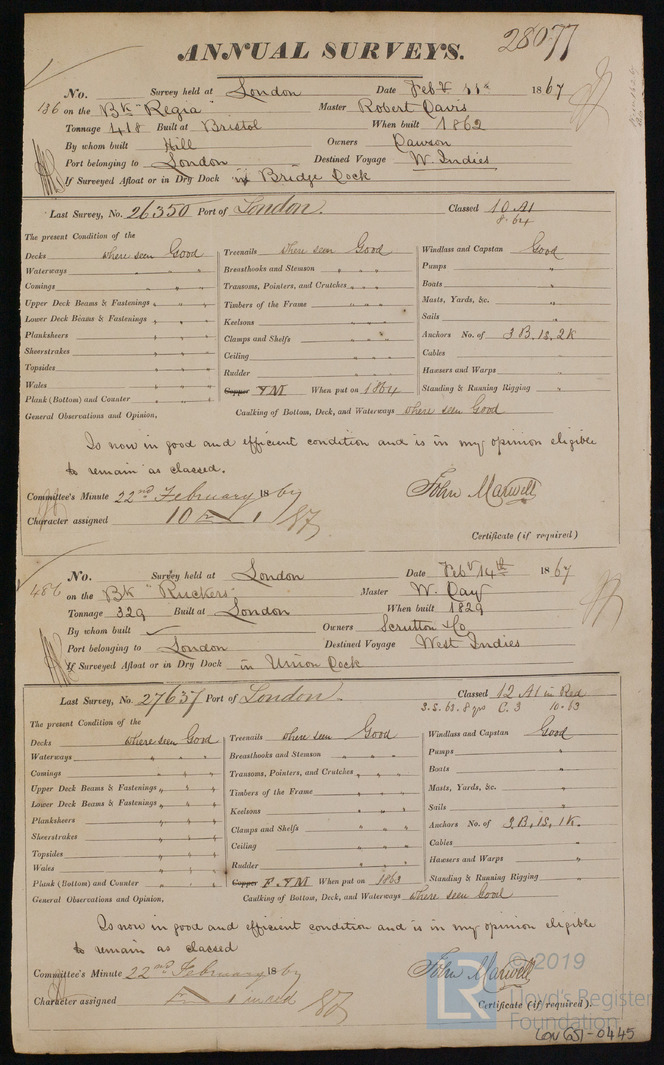 28077
ANNUAL SURVEYS.
No. Survey held at London Date Feby 11th 1867
136 on the Bk "Regia" Master Robert Davis
Tonnage 418 Built at Bristol When built 1862
By whom built Hill Owners Dawson
Port belonging to London Destined Voyage W. Indies
If Surveyed Afloat or in Dry Dock in Bridge Dock
Last Survey, No. 26350 Port of London. Classed 10 A1
8.64
The present Condition of the
Decks where seen Good Treenails where seen Good Windlass and Capstan Good
Waterways " " " Breasthooks and Stemson " " " Pumps "
Comings " " " Transoms, Pointers, and Crutches " " " Boats "
Upper Deck Beams & Fastenings " " " Timbers of the Frame " " " Masts, Yards, &c. "
Lower Deck Beams & Fastenings " " " Keelsons " " " Sails "
Planksheers " " " Clamps and Shelfs " " " Anchors No. of 3 B. 1S. 2K
Sheerstrakes " " " Ceiling " " " Cables "
Topsides " " " Rudder " " " Hawsers and Warps "
Wales " " " Copper Y M When put on 1864 Standing & Running Rigging "
Plank (Bottom) and Counter " " "
General Observations and Opinion, Caulking of Bottom, Deck, and Waterways where seen Good
Is now in good and efficient condition and is in my opinion eligible
to remain as classed.
Committee's Minute 22nd February 1867 John Maxwell
Character assigned 10 A 1
Certificate (if required)
No. Survey held at London Date Feby 14th 1867
486 on the Bk "Ruckers" Master W. Day
Tonnage 329 Built at London When built 1829
By whom built Owners Scrutton & Co
Port belonging to London Destined Voyage West Indies
If Surveyed Afloat or in Dry Dock in Union Dock
Last Survey, No. 27637 Port of London. Classed 12 A1 in Red
3.S. 63. 8 yrs C. 3 10-63
The present Condition of the
Decks where seen Good Treenails where seen Good Windlass and Capstan Good
Waterways " " " Breasthooks and Stemson " " " Pumps "
Comings " " " Transoms, Pointers, and Crutches " " " Boats "
Upper Deck Beams & Fastenings " " " Timbers of the Frame " " " Masts, Yards, &c. "
Lower Deck Beams & Fastenings " " " Keelsons " " " Sails "
Planksheers " " " Clamps and Shelfs " " " Anchors No. of 3 B, 1S, 1K.
Sheerstrakes " " " Ceiling " " " Cables "
Topsides " " " Rudder " " " Hawsers and Warps "
Wales " " " Copper F. Y M When put on 1863 Standing & Running Rigging "
Plank (Bottom) and Counter " " "
General Observations and Opinion, Caulking of Bottom, Deck, and Waterways where seen Good
Is now in good and efficient condition and is in my opinion eligible
to remain as classed
Committee's Minute 22nd February 1867 John Maxwell
Character assigned 1 in red
Certificate (if required).
© 2019
LR Lloyd's Register
Foundation
LON 651-0445